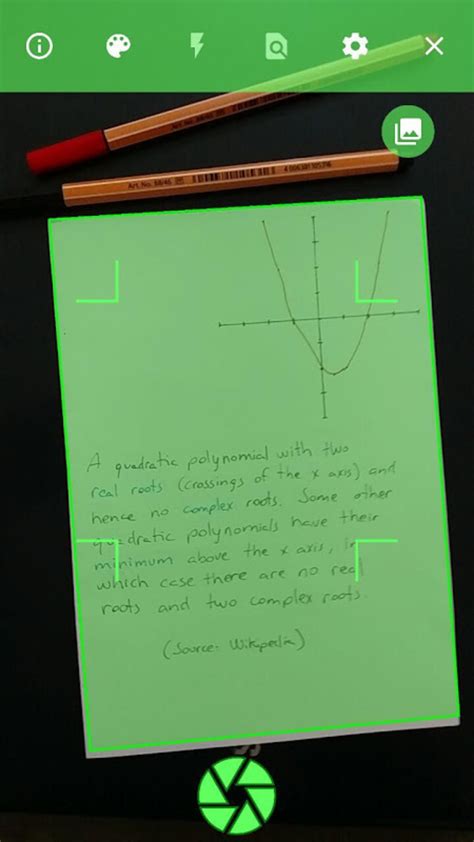 Art. No. 88/46
Art. No. 88/46
A quadratic polynomial with two
real roots (crossings of the x axis) and
hence no complex roots. Some other
quadratic polynomials have their
minimum above the x axis, in
which case there are no real
roots and two complex roots.
(Source: Wikipedia)